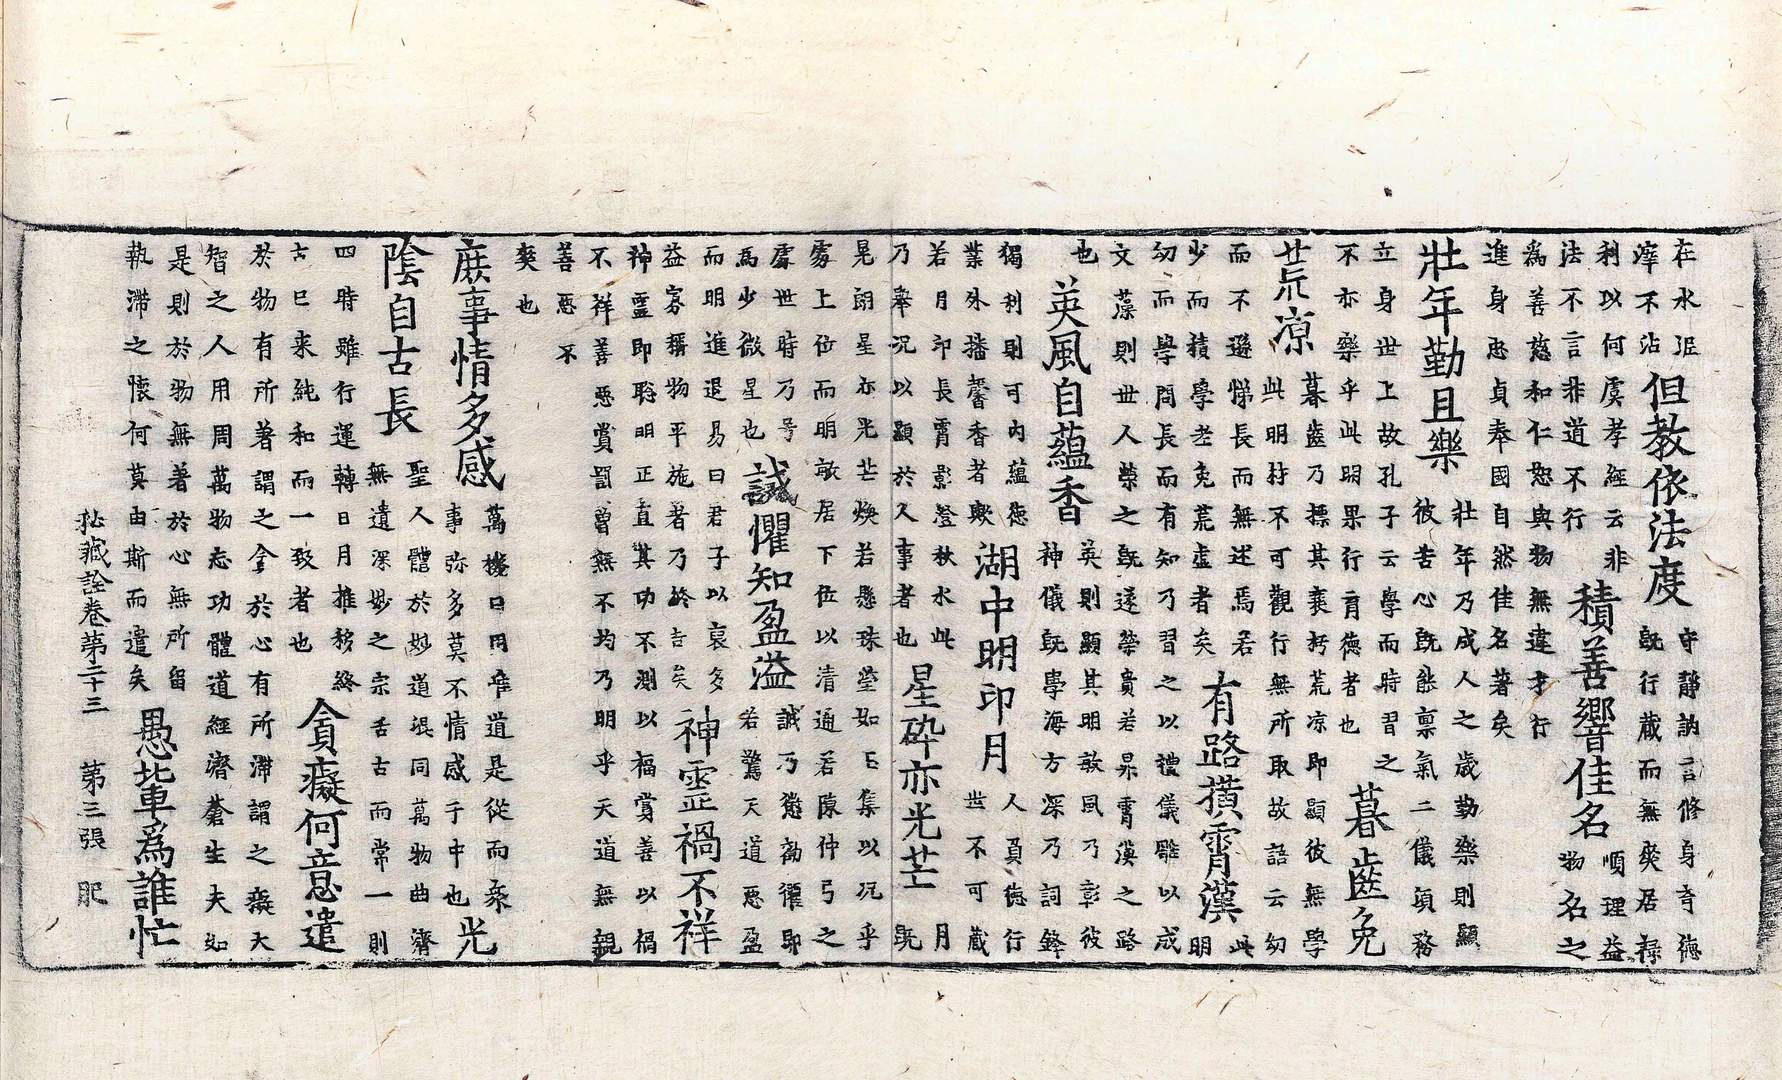 在水泥
滓不沾
但教依法度
守靜訥言修身育德
既行藏而無爽居祿
利以何虞孝經云非
法不言非道不行
積善響佳名
順理益
物名之
爲善慈和仁恕與物無違才行
進身忠貞奉國自然佳名著矣
壯年勤且樂
壯年乃成人之歲勤樂則顯
彼苦心既能稟氣二儀須務
立身世上故孔子云學而時習之
不亦樂乎此明果行育德者也
暮齒免
荒凉
暮齒乃標其衰朽荒凉即顯彼無學
此明持不可觀行無所取故語云幼
而不遜悌長而無述焉若
少而積學老免荒虛者矣
有路摸霄漢
此
明
幼而學問長而有知乃習之以禮儀雕以成
文藻則世人榮之既遂榮貴若昇霄漢之路
也
英風自蘊香
英則顯其明敏風乃彰彼
神儀既學海方深乃詞鋒
獨利則可内蘊德
業外播馨香者歟
湖中明印月
人負德行
世不可藏
若月印長霄影澄秋水此
乃舉況以顯於人事者也
星碎亦光芒
月
既
晃朗星亦光芒煥若懸珠瑩如玉集以況乎
雰上位而明敏居下位以清通若陳仲弓之
處世時乃号
爲少微星也
誡懼知盈溢
誡乃懲勸懼即
若驚天道惡盈
而明進退易曰君子以裒多
益寡稱物平施著乃終吉矣
神靈禍不祥
神靈即聡明正直其功不測以福賞善以禍
不祥善惡賞罰曾無不均乃明乎天道無親
善惡不
爽也
庶事情多感
萬機日用唯道是從而衆
事弥多莫不情感于中也
光
陰自古長
聖人體於妙道混同萬物曲濟
無遺深妙之宗亙古而常一則
四時雖行運轉日月推移終
古已来純和而一致者也
貪癡何意遣
於物有所著謂之貪於心有所滯謂之癡大
智之人用周萬物志功體道經濟蒼生夫如
是則於物無著於心無所留
執滯之懷何莫由斯而遣矣
愚輩爲誰忙
秘藏詮卷第二十三 第三張 肥